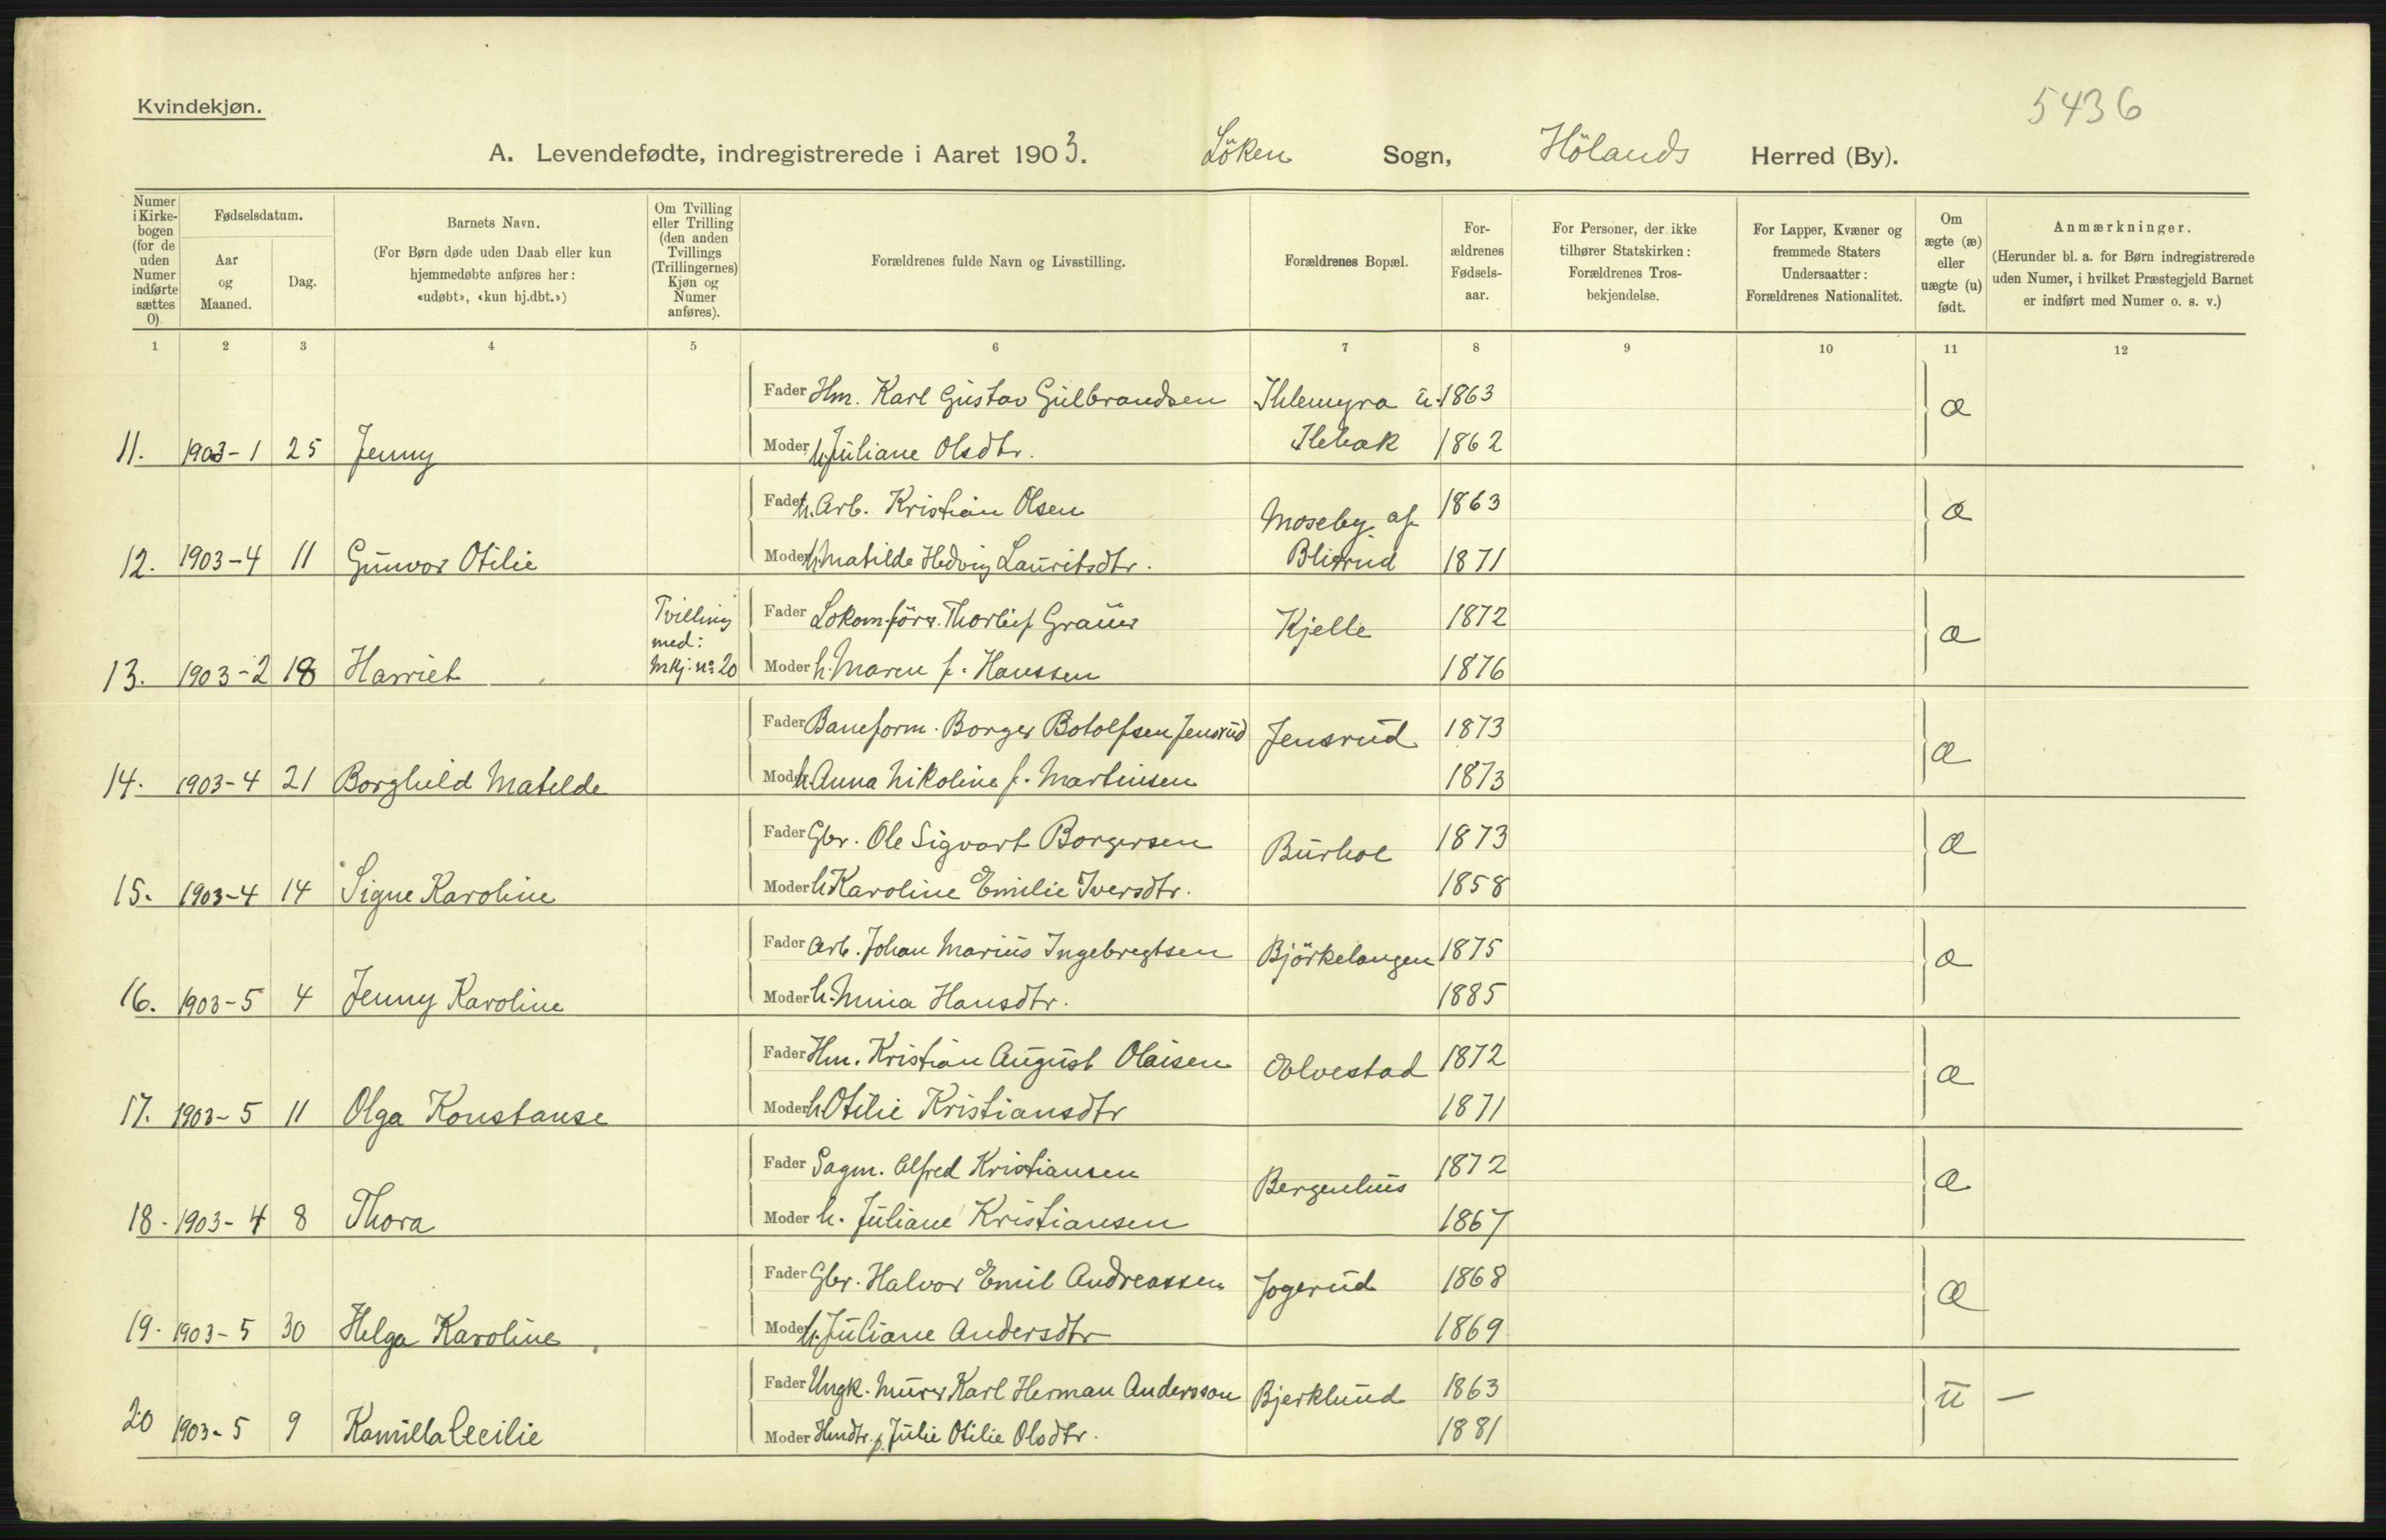 Kvindekjøn.
5436
A. Levendefødte, indregistrerede i Aaret 1903. Löken Sogn, Hölands Herred (By).
Numer i Kirkebogen (for de uden Numer indførte sættes 0).
Fødselsdatum.
Aar og Maaned.
Dag.
Barnets Navn.
(For Børn døde uden Daab eller kun
hjemmedøbte anføres her:
«udøbt», «kun hj.dbt.»)
Om Tvilling
eller Trilling
(den anden
Tvillings
(Trillingernes)
Kjøn og
Numer
anføres).
Forældrenes fulde Navn og Livsstilling.
Forældrenes Bopæl.
For-
ældrenes
Fødsels-
aar.
For Personer, der ikke
tilhører Statskirken:
Forældrenes Tros-
bekjendelse.
For Lapper, Kvæner og
fremmede Staters
Undersaatter:
Forældrenes Nationalitet.
Om
ægte (æ)
eller
uægte (u)
født.
Anmærkninger.
(Herunder bl. a. for Børn indregistrerede
uden Numer, i hvilket Præstegjeld Barnet
er indført med Numer o. s. v.)
1 2 3 4 5 6 7 8 9 10 11 12
Fader Hm. Karl Gustav Gulbrandsen Ihlemyra u. 1863 æ
11. 1903-1 25 Jenny Moder h. Juliane Olsdtr. Ilebæk 1862
Fader h. Arb. Kristian Olsen Moseby af 1863 æ
12. 1903-4 11 Gunvor Otilie Moder h. Matilde Hedvig Lauritsdtr. Blixrud 1871
Tvilling med: Mkj. no 20
Fader Lokom.förer. Thorleif Grauer Kjelle 1872 æ
13. 1903-2 18 Harriet Moder h. Maren f. Hanssen 1876
Fader Baneform. Borger Botolfsen Jensrud Jensrud 1873 æ
14. 1903-4 21 Borghild Matilde Moder h. Anna Nikoline f. Martinsen 1873
Fader Gbr. Ole Sigvart Borgersen Burhol 1873 æ
15. 1903-4 14 Signe Karoline Moder h. Karoline Emilie Iversdtr. 1858
Fader Arb. Johan Marius Ingebregtsen Björkelangen 1875 æ
16. 1903-5 4 Jenny Karoline Moder h. Mina Hansdtr. 1885
Fader Hm. Kristian August Olaisen Dolvestad 1872 æ
17. 1903-5 11 Olga Konstanse Moder h. Otilie Kristiansdtr 1871
Fader Sagm. Alfred Kristiansen Bergenhus 1872 æ
18. 1903-4 8 Thora Moder h. Juliane Kristiansen 1867
Fader Gbr. Halvor Emil Andreassen Jogerud 1868 æ
19. 1903-5 30 Helga Karoline Moder h. Juliane Andersdtr 1869
Fader Ungk. Murer Karl Herman Andersson Bjerklund 1863 u —
20 1903-5 9 Kamilla Cecilie Moder Hmdtr. p. Julie Otilie Olsdtr. 1881